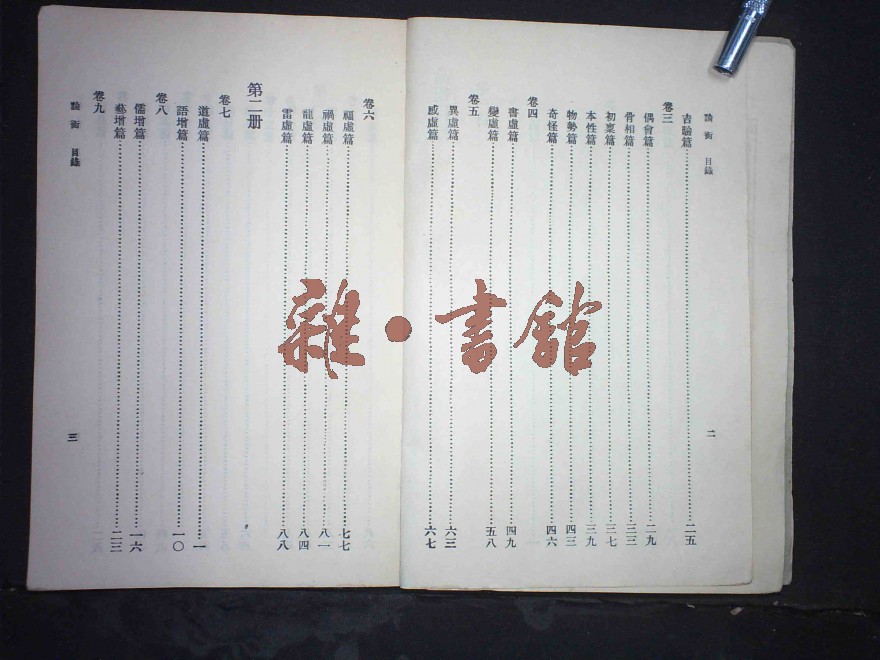 論衡 目錄
吉驗篇……二五
卷三
偶會篇……二九
骨相篇……三三
初稟篇……三七
本性篇……三九
物勢篇……四三
奇怪篇……四六
卷四
書虛篇……四九
變虛篇……五八
卷五
異虛篇……六三
感虛篇……六七
二
卷六
福虛篇……七七
禍虛篇……八一
龍虛篇……八四
雷虛篇……八八
第二册
卷七
道虛篇……一
語增篇……一〇
卷八
儒增篇……一六
藝增篇……二三
卷九
論衡 目錄
三
雜·書館